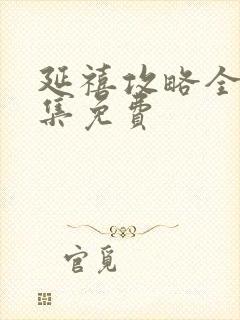 延禧攻略全
集免费
官覓